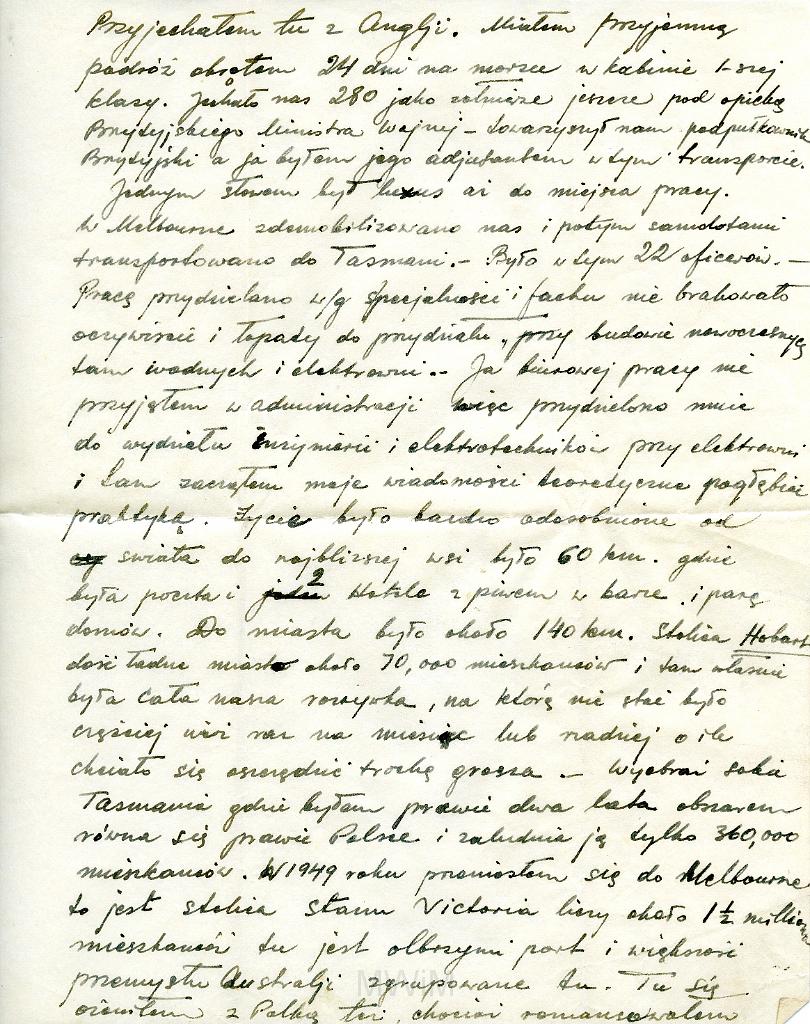 Przyjechałem tu z Anglji. Miałem przyjemną
podróż okrętem 24 dni na morzu w kabinie 1-szej
klasy. Jechało nas 280 jako żołnierze jeszcze pod opieką
Brytyjskiego Ministra Wojny – towarzyszył nam podpułkownik
Brytyjski a ja byłem jego adjutantem w tym transporcie.
Jednym słowem był luxus aż do miejsca pracy.
W Melbourne zdemobilizowano nas i potym samolotami
transportowano do Tasmani. – Było w tym 22 oficerów. –
Pracę przydzielano w/g specjalności i fachu nie brakowało
oczywiście i łopaty do przydziału, przy budowie nowoczesnych
tam wodnych i elektrowni. – Ja biurowej pracy nie
przyjąłem w administracji więc przydzielono mnie
do wydziału inżynierii i elektrotechników przy elektrowni
i tam zacząłem moje wiadomości teoretyczne pogłębiać
praktyką. Życie było bardzo odosobnione od
świata do najbliższej wsi było 60 km. gdzie
była poczta i 2 Hotele z piwem w barze, i parę
domów. Do miasta było około 140 km. Stolica Hobart
dość ładne miasto około 70,000 mieszkańców i tam właśnie
była cała nasza rozrywka, na którą nie stać było
częściej niż raz na miesiąc lub rzadziej o ile
chciało się oszczędzić trochę grosza. – Wyobraź sobie
Tasmania gdzie byłem prawie dwa lata obszarem
równa się prawie Polsce i zaludnia ją tylko 360,000
mieszkańców. W 1949 roku przeniosłem się do Melbourne
to jest stolica Stanu Victoria liczy około 1½
mieszkańców tu jest olbrzymi port i większość
przemysłu Australji zgrupowane tu. Tu się
ożeniłem z Polką też, chociaż romansowałem
MWiM